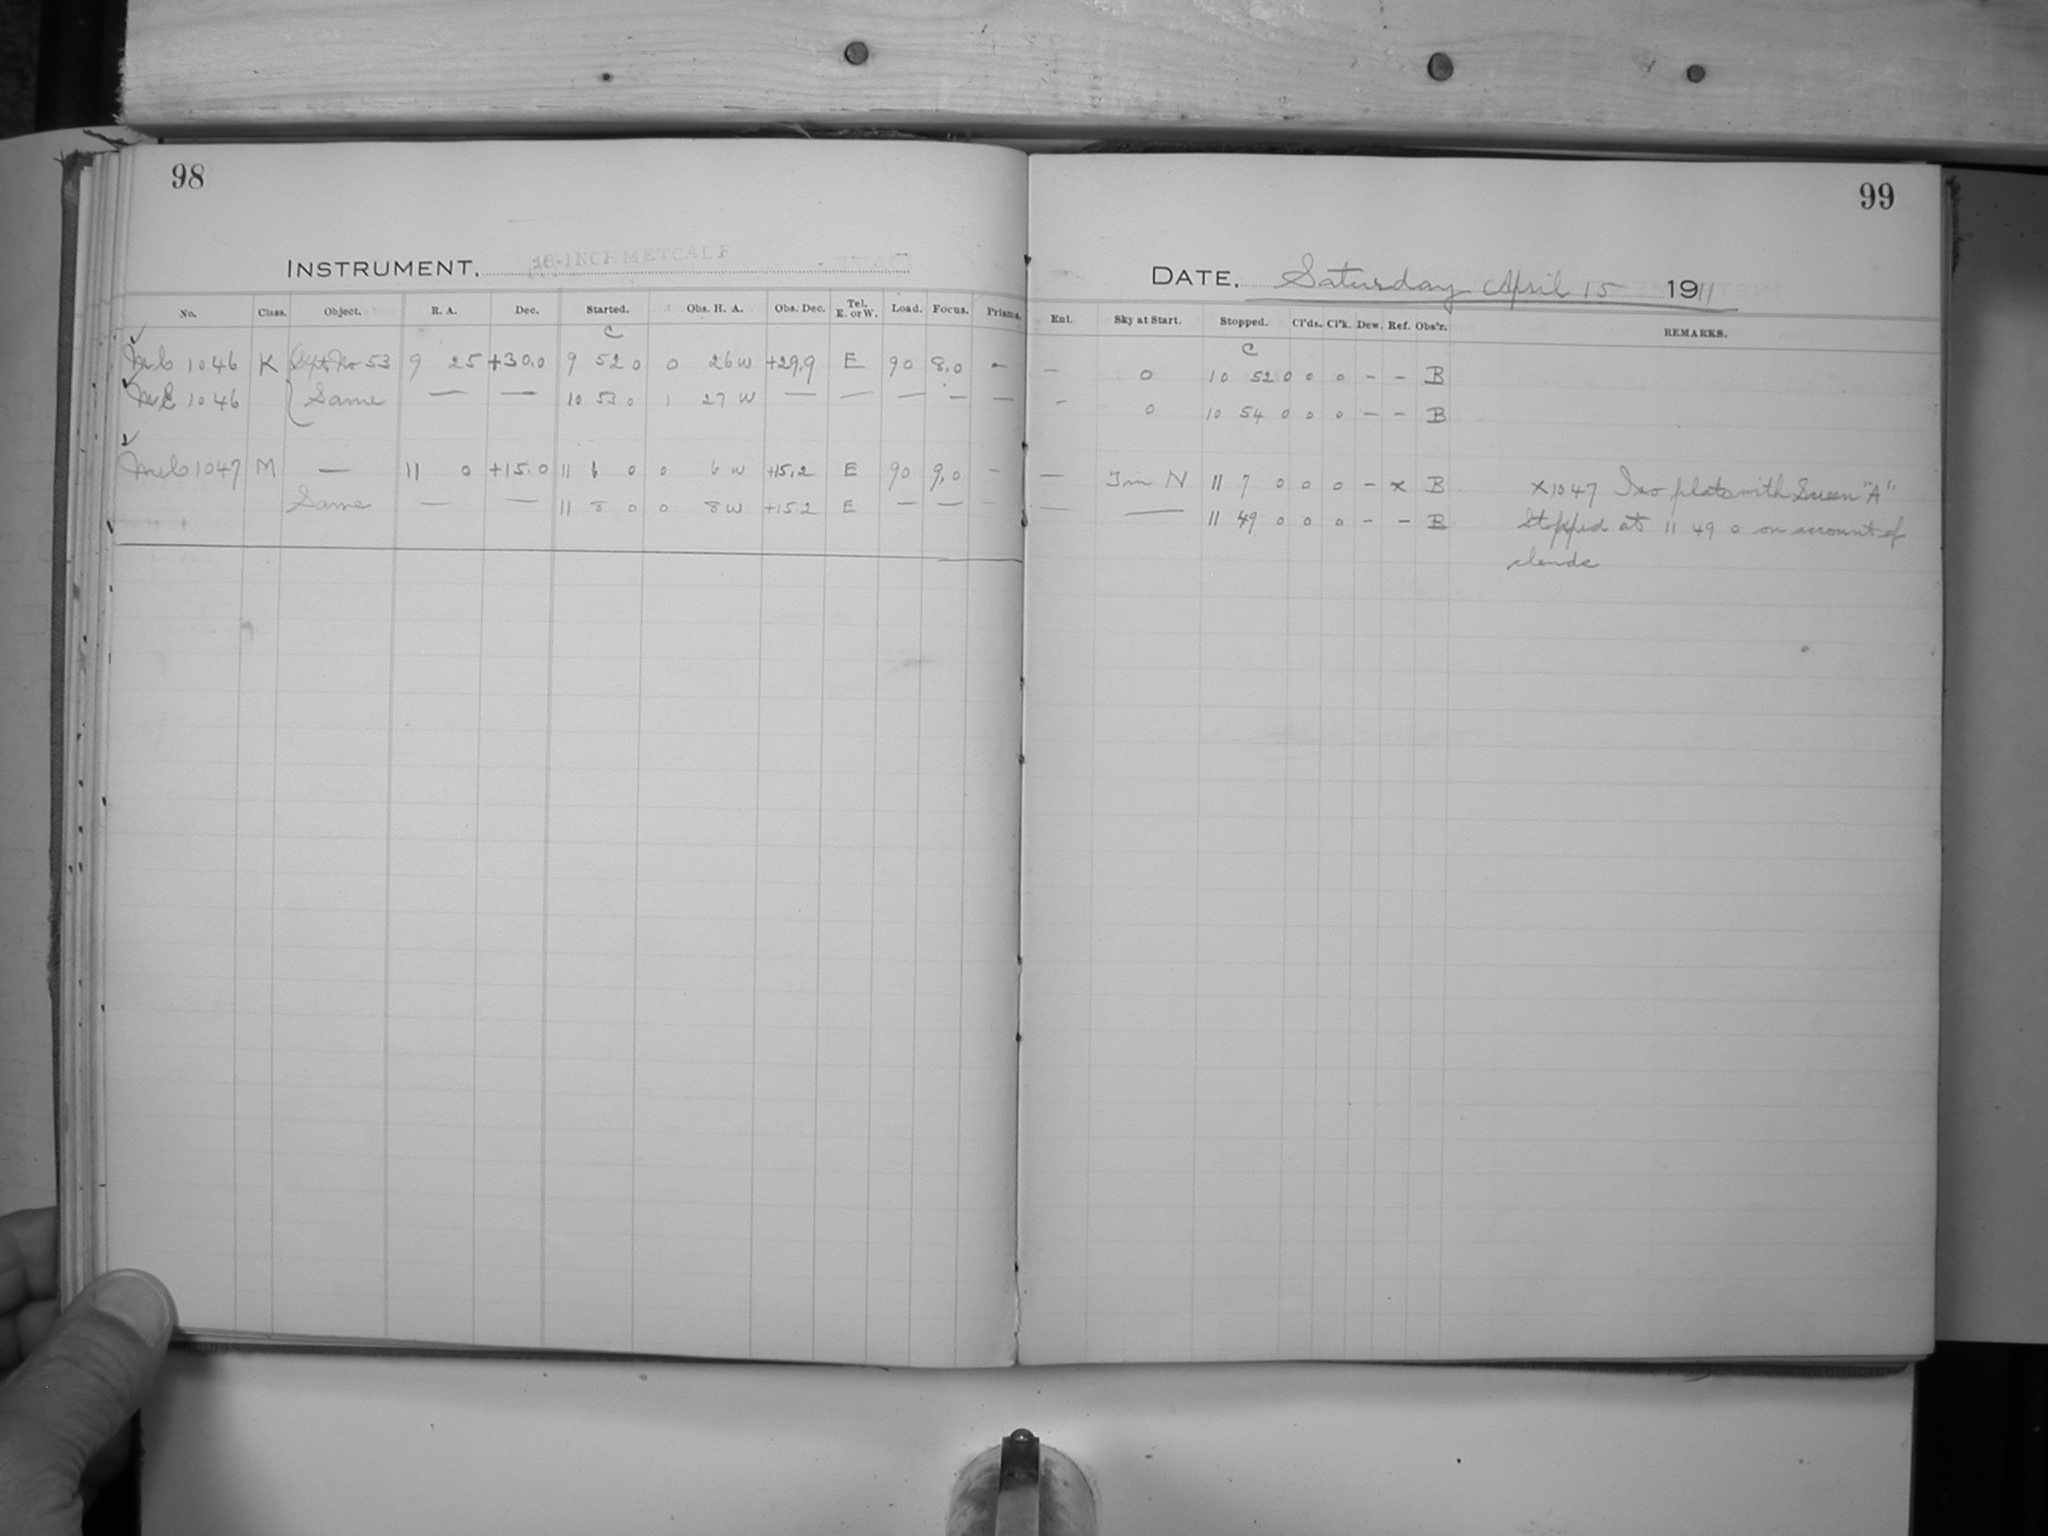 98
INSTRUMENT, 16-INCH METCALF
No. Class. Object. R. A. Dec. Started. Obs. H. A. Obs. Dec. Tel. E. or W. Load. Focus. Prisms.
C
1046 K No 53 9 25 +30.0 9 52 0 0 26 W +29.9 E 90 8.0 —
1046 Same — — 10 53 0 1 27 W — — — — —
1047 M — 11 0 +15.0 11 6 0 0 6 W +15.2 E 90 9.0 —
Same — — 11 8 0 0 8 W +15.2 E — — —
99
DATE, Saturday April 15 1911
Enl. Sky at Start. Stopped. Cl'ds. Cl'k. Dew. Ref. Obs'r. REMARKS.
C
— 0 10 52 0 0 0 – – B
– 0 10 54 0 0 0 – – B
— N 11 7 0 0 0 – x B x 1047 Iso plate with Screen "A"
— — 11 49 0 0 0 – – B Stopped at 11 49 0 on account of
clouds